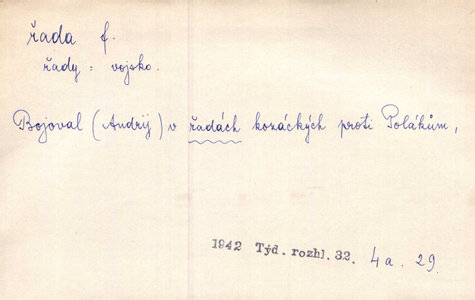 řada f.
řady = vojsko.
Bojoval (Andrij) v řadách kozáckých proti Polákům,
1942 Týd. rozhl. 32. 4a. 29.